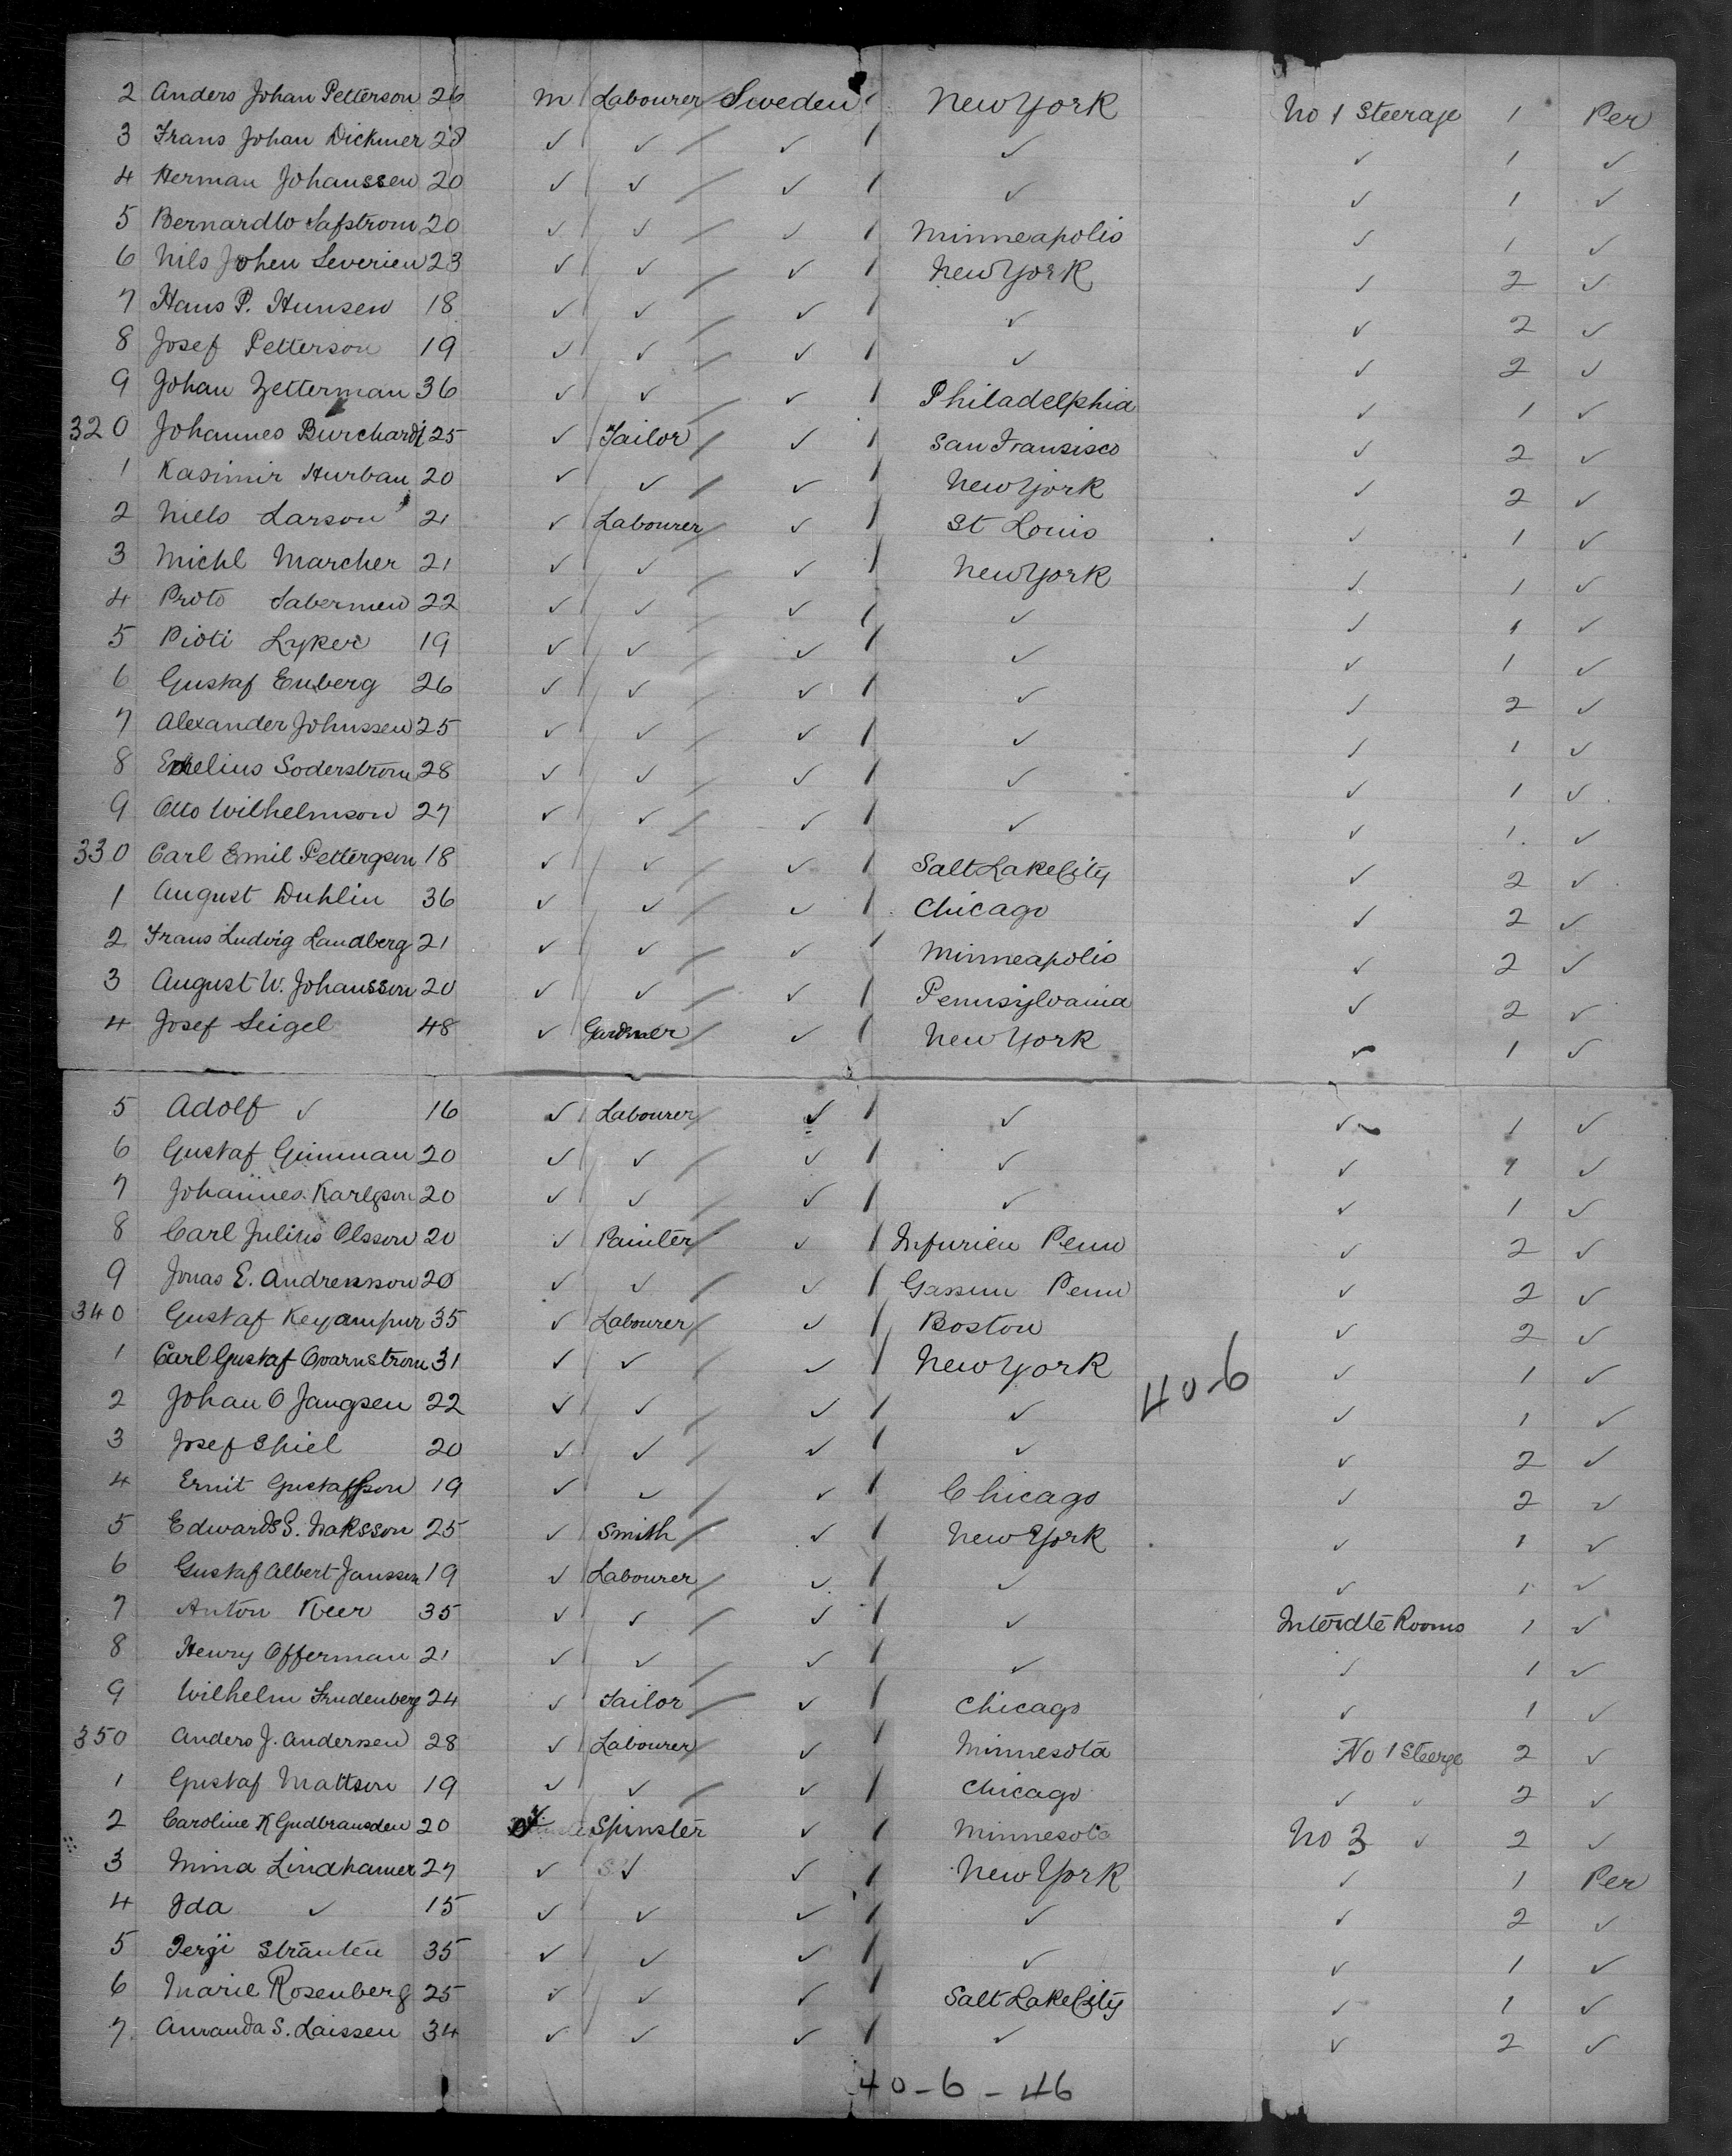 2 Anders Johan Petterson 26 m Labourer Sweden New York No 1 Steerage 1 Per
3 Frans Johan Dickmer 28 ✓ ✓ ✓ ✓ ✓ 1 ✓
4 Herman Johanssen 20 ✓ ✓ ✓ ✓ ✓ 1 ✓
5 Safstrom 20 ✓ ✓ ✓ Minneapolis ✓ 1 ✓
6 Nils Johen Severien 23 ✓ ✓ ✓ New York ✓ 2 ✓
7 Hans P. Hunsen 18 ✓ ✓ ✓ ✓ ✓ 2 ✓
8 Josef Petterson 19 ✓ ✓ ✓ ✓ ✓ 2 ✓
9 Johan Zetterman 36 ✓ ✓ ✓ Philadelphia ✓ 1 ✓
320 Johannes Burchardt 25 ✓ Tailor ✓ San Fransisco ✓ 2 ✓
1 Kasimir Hurban 20 ✓ ✓ ✓ New York ✓ 2 ✓
2 Niels Larson 21 ✓ Labourer ✓ St Louis ✓ 1 ✓
3 Michl Marcher 21 ✓ ✓ ✓ New York ✓ 1 ✓
4 Proto Sabermen 22 ✓ ✓ ✓ ✓ ✓ 1 ✓
5 Pioti Lyker 19 ✓ ✓ ✓ ✓ ✓ 1 ✓
6 Gustaf Enberg 26 ✓ ✓ ✓ ✓ ✓ 2 ✓
7 Alexander Johnssen 25 ✓ ✓ ✓ ✓ ✓ 1 ✓
8 Soderstrom 28 ✓ ✓ ✓ ✓ ✓ 1 ✓
9 Otto Wilhelmson 27 ✓ ✓ ✓ ✓ ✓ 1 ✓
330 Carl Emil Pettergson 18 ✓ ✓ ✓ Salt Lake City ✓ 2 ✓
1 August Duhlin 36 ✓ ✓ ✓ Chicago ✓ 2 ✓
2 Frans Ludvig Landberg 21 ✓ ✓ ✓ Minneapolis ✓ 2 ✓
3 August W. Johansson 20 ✓ ✓ ✓ Pennsylvania ✓ 2 ✓
4 Josef Seigel 48 ✓ Gardner ✓ New York ✓ 1 ✓
5 Adolf ✓ 16 ✓ Labourer ✓ ✓ ✓ 1 ✓
6 Gustaf Gunman 20 ✓ ✓ ✓ ✓ ✓ 1 ✓
7 Johannes Karlgson 20 ✓ ✓ ✓ ✓ ✓ 1 ✓
8 Carl Julius Olsson 20 ✓ Painter ✓ Penn ✓ 2 ✓
9 Jonas E. Andreasson 20 ✓ ✓ ✓ Penn ✓ 2 ✓
340 Gustaf 35 ✓ Labourer ✓ Boston ✓ 2 ✓
1 Carl Gustaf Qvarnstrom 31 ✓ ✓ ✓ New York 40-6 ✓ 1 ✓
2 Johan O Jangsen 22 ✓ ✓ ✓ ✓ ✓ 1 ✓
3 Josef Shiel 20 ✓ ✓ ✓ ✓ ✓ 2 ✓
4 Ernit Gustafsson 19 ✓ ✓ ✓ Chicago ✓ 2 ✓
5 Edward S. Naksson 25 ✓ Smith ✓ New York ✓ 1 ✓
6 Gustaf Albert Janssen 19 ✓ Labourer ✓ ✓ ✓ 1 ✓
7 Anton Keer 35 ✓ ✓ ✓ ✓ Interdte Rooms 1 ✓
8 Henry Offerman 21 ✓ ✓ ✓ ✓ ✓ 1 ✓
9 Wilhelm Frudenberg 24 ✓ Tailor ✓ Chicago ✓ 1 ✓
350 Anders J. Andersen 28 ✓ Labourer ✓ Minnesota No 1 Steerge 2 ✓
1 Gustaf Mattson 19 ✓ ✓ ✓ Chicago ✓ ✓ 2 ✓
2 Caroline K Gudbransden 20 Spinster ✓ Minnesota No 3 ✓ 2 ✓
3 Mina Lindhamer 27 ✓ ✓ ✓ New York ✓ 1 Per
4 Ida ✓ 15 ✓ ✓ ✓ ✓ ✓ 2 ✓
5 Stranten 35 ✓ ✓ ✓ ✓ ✓ 1 ✓
6 Marie Rosenberg 25 ✓ ✓ ✓ Salt Lake City ✓ 1 ✓
7 Amanda S. Laissen 34 ✓ ✓ ✓ ✓ ✓ 2 ✓
40-6-46